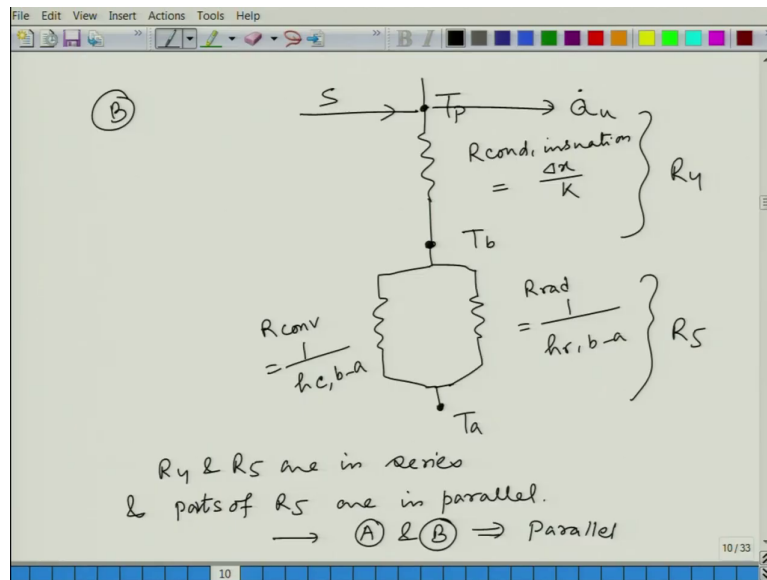 File Edit View Insert Actions Tools Help
B I
B
S Tp Q̇u
Rcond, insuation
= Δx/K
R4
Tb
Rconv
= 1/hc, b-a
Rrad
= 1/hr, b-a
R5
Ta
R4 & R5 are in series
& parts of R5 are in parallel.
→ A & B ⇒ Parallel
10/33
10